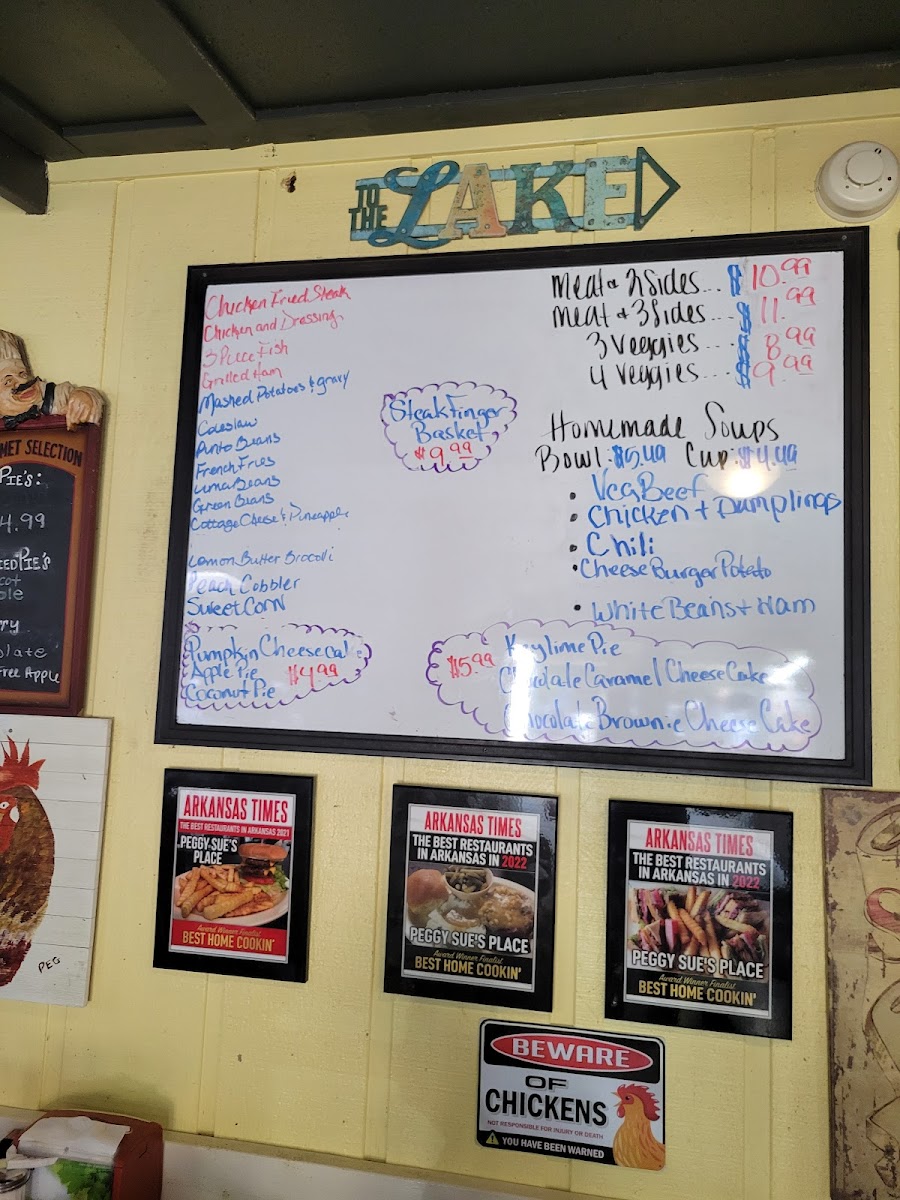 TO THE LAKE
Chicken Fried Steak
Chicken and Dressing
3 Piece Fish
Grilled Ham
Mashed Potatoes & gravy
Coleslaw
Pinto Beans
French Fries
Lima Beans
Green Beans
Cottage Cheese & Pineapple
Lemon Butter Brocolli
Peach Cobbler
Sweet Corn
Pumpkin Cheesecake
Apple Pie $4.99
Coconut Pie
Steak Finger
Basket
$9.99
Meat & 2 Sides... $10.99
Meat & 3 Sides... $11.99
3 Veggies... $8.99
4 Veggies... $9.99
Homemade Soups
Bowl: $5.49 Cup: $4.49
• Veg Beef
• Chicken + Dumplings
• Chili
• Cheese Burger Potato
• White Beans + Ham
$5.99 Keylime Pie
Chocolate Caramel Cheese Cake
Chocolate Brownie Cheese Cake
NET SELECTION
PIE'S:
4.99
IED PIE'S
cot
ple
rry
olate
Free Apple
PEG
ARKANSAS TIMES
THE BEST RESTAURANTS IN ARKANSAS 2021
PEGGY SUE'S
PLACE
Award Winner Finalist
BEST HOME COOKIN'
ARKANSAS TIMES
THE BEST RESTAURANTS
IN ARKANSAS IN 2022
PEGGY SUE'S PLACE
Award Winner Finalist
BEST HOME COOKIN'
ARKANSAS TIMES
THE BEST RESTAURANTS
IN ARKANSAS IN 2022
PEGGY SUE'S PLACE
Award Winner Finalist
BEST HOME COOKIN'
BEWARE
OF
CHICKENS
NOT RESPONSIBLE FOR INJURY OR DEATH
YOU HAVE BEEN WARNED